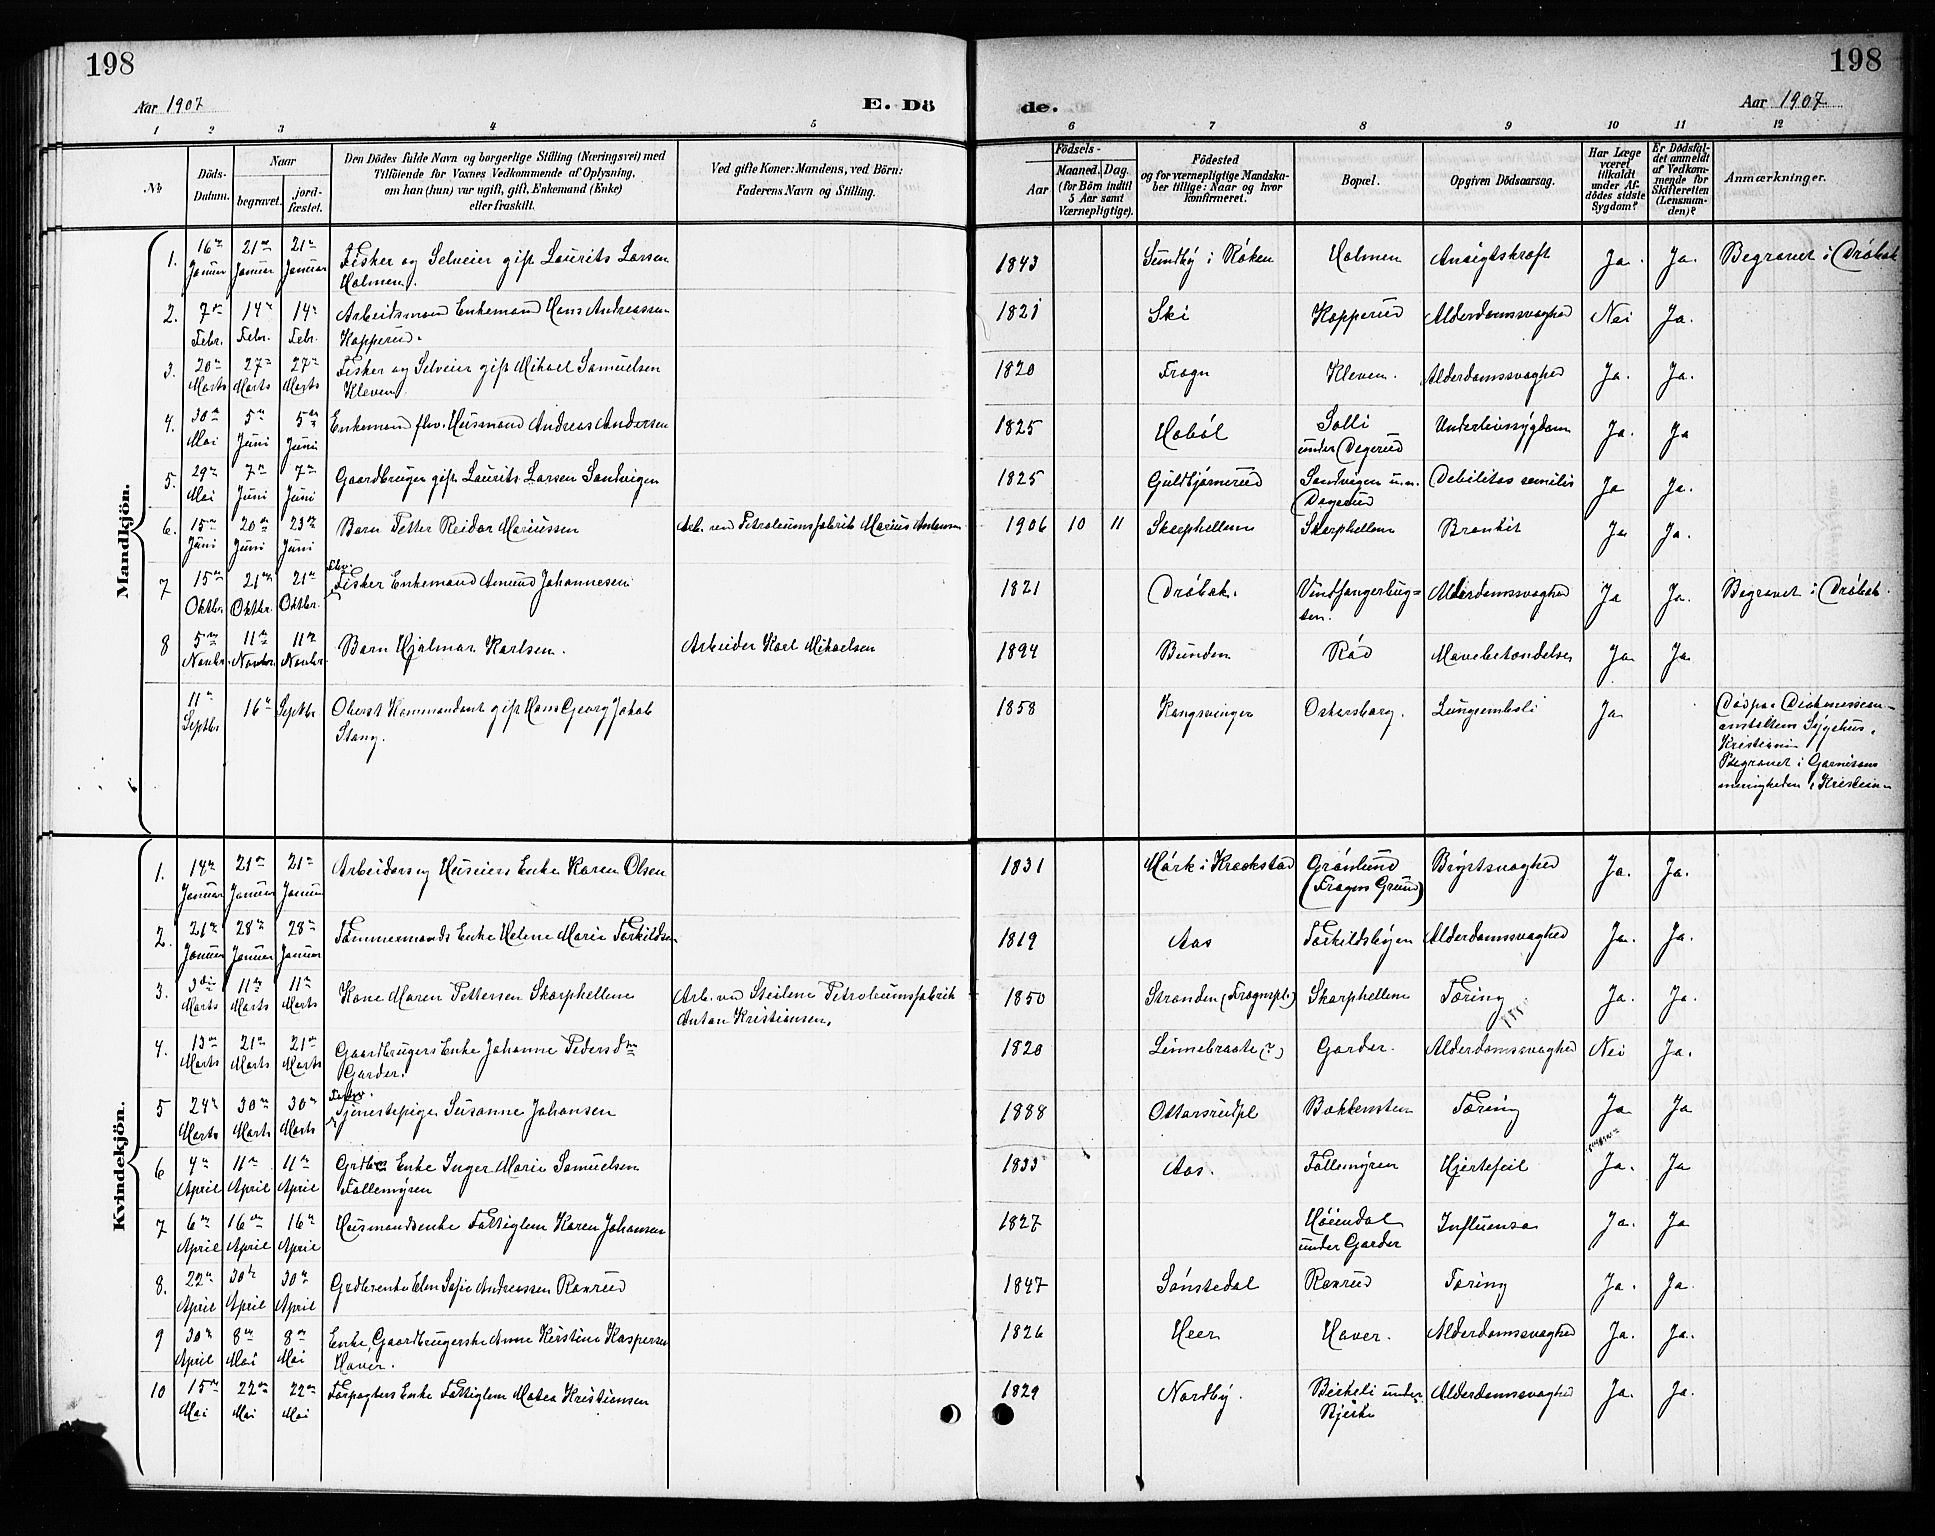 198
198
Aar 1907
E. Dö
de.
Aar 1907
1 2 3 4 5 6 7 8 9 10 11 12
No
Döds-Datum.
Naar
begravet.
jord-fæstet.
Den Dödes fulde Navn og borgerlige Stilling (Næringsvei) med
Tilföiende for Voxnes Vedkommende af Oplysning,
om han (hun) var ugift, gift, Enkemand (Enke)
eller fraskilt.
Ved gifte Koner: Mandens, ved Börn:
Faderens Navn og Stilling.
Födsels-
Aar
Maaned. Dag.
(for Börn indtil
5 Aar samt
Værnepligtige).
Födested
og for værnepligtige Mandska-
ber tillige: Naar og hvor
konfirmeret.
Bopæl.
Opgiven Dödsaarsag.
Har Læge
været
tilkaldt
under Af-
dödes sidste
Sygdom?
Er Dödsfal-
det anmeldt
af Vedkom-
mende for
Skifteretten
(Lensman-
den)?
Anmærkninger.
Mandkjön.
1. 16de Januar 21de Januar 21de Januar Fisker og Selveier gift Laurits Larsen 1843 Sundby i Röken Holmen Ansigtskræft Ja. Ja. Begravet i Dröbak
Holmen.
2. 7de Febr. 14de Febr. 14de Febr. Arbeidsmand Enkemand Hans Andreassen 1821 Ski Kopperud Alderdomssvaghed Nei Ja.
Kopperud.
3. 20de Marts 27de Marts 27de Marts Fisker og Selveier gift Mikael Samuelsen 1820 Frogn Kleven. Alderdomssvaghed Ja. Ja.
Kleven
4. 30de Mai 5te Juni 5te Juni Enkemand fhv. Husmand Andreas Andersen 1825 Haböl Solli Underlivssygdom Ja. Ja
under Degerud
5. 29de Mai 7de Juni 7de Juni Gaardbruger gift Laurits Larsen Sandvigen 1825 Guldbjörnerud Sandvigen u. Debilitas senilis Ja Ja.
Degerud
6. 15de Juni 20de Juni 23de Juni Barn Petter Reidar Mariussen Arb. ved Petroleumsfabrik Marius Antonsen 1906 10 11 Skarphellene Skarphellene Bronkit Ja Ja.
7 15de Oktbr. 21de Oktbr. 21de Oktbr. Fhv. Fisker Enkemand Amund Johannesen 1821 Dröbak. Vindfangerbug= Alderdomssvaghed Ja Ja. Begravet i Dröbak.
ten.
8 5te Novbr. 11te Novbr. 11te Novbr. Barn Hjalmar Karlsen. Arbeider Karl Mikaelsen 1894 Bunden Röd Mavebetændelse Ja Ja
11te Septbr. 16de Septbr. Oberst Kommandant gift Hans Georg Jakob 1858 Kongsvinger Oskarsborg. Lungeemboli Ja Död paa Diakonissean-
Stang. anstaltens Sygehus,
Kristiania
Begravet i Garnisons
menigheden i Kristiania
Kvindekjön.
1. 14de Januar 21de Januar 21de Januar Arbeiders og Huseiers Enke Karen Olsen 1831 Mörk i Kraakstad Grönlund Brystsvaghed Ja. Ja.
(Frogns Grund)
2. 21de Januar 28de Januar 28de Januar Tömmermands Enke Helene Marie Torkildsen 1819 Aas Torkildsbyen Alderdomssvaghed Ja. Ja.
3. 3die Marts 11te Marts 11te Marts Kone Maren Pettersen Skarphellene Arb. ved Steilene Petroleumsfabrik 1850 Stranden (Frognspl.) Skarphellene Tæring Ja. Ja.
Anton Kristiansen.
4. 13de Marts 21de Marts 21de Marts Gaardbrugers Enke Johanne Pedersd. 1820 Linnebraate (?) Garder. Alderdomssvaghed Nei Ja.
Garder.
5 24de Marts 30de Marts 30de Marts Tjenestepige Susanne Johansen 1888 Ottarsrudpl Bakkensten Tæring Ja Ja
6 4de April 11te April 11te April Grdbr. Enke Inger Marie Samuelsen 1833 Aas. Follemyren Hjertefeil Ja. Ja
Follemyren
7 6te April 16de April 16de April Husmandsenke Fattiglem Karen Johansen 1827 Höiendal Influensa Ja. Ja
under Garder
8. 22de April 30te April 30te April Grdbrenke Elen Sofie Andreassen Roxrud 1847 Sönstedal Roxrud Tæring Ja. Ja.
9 30te April 8de Mai 8de Mai Enke, Gaardbrugerske Anne Kirstine Kaspersen 1826 Heer Haver. Alderdomssvaghed Ja. Ja.
Haver.
10 15de Mai 22de Mai 22de Mai Forpagters Enke Fattiglem Matea Kristiansen 1829 Nordby. Birkeli under Alderdomssvaghed Ja. Ja.